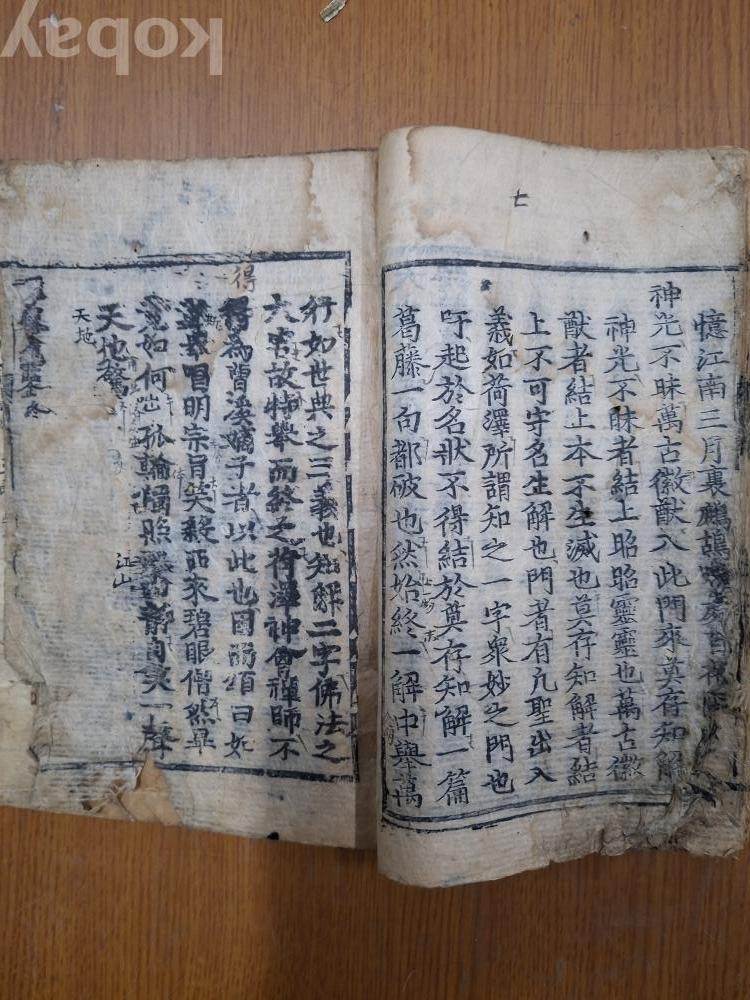 七
憶江南三月裏鷓鴣
神光不昧萬古徽猷入此門來莫存知解
神光不昧者結上昭昭靈靈也萬古徽
猷者結上本不生滅也莫存知解者結
上不可守名生解也門者有凡聖出入
義如荷澤所謂知之一字衆妙之門也
吁起於名狀不得結於莫存知解一篇
葛藤一句都破也然始終一解中擧萬
行如世典之三義也知解二字佛法之
大害故特擧而終之荷澤神會禪師不
得
得為曹溪嫡子者以此也因而頌曰如
唱明宗旨笑殺西來碧眼僧然畢
竟如何咄孤輪獨照靜自笑一聲
江山
天地驚
天地
龜鑑終
kobay